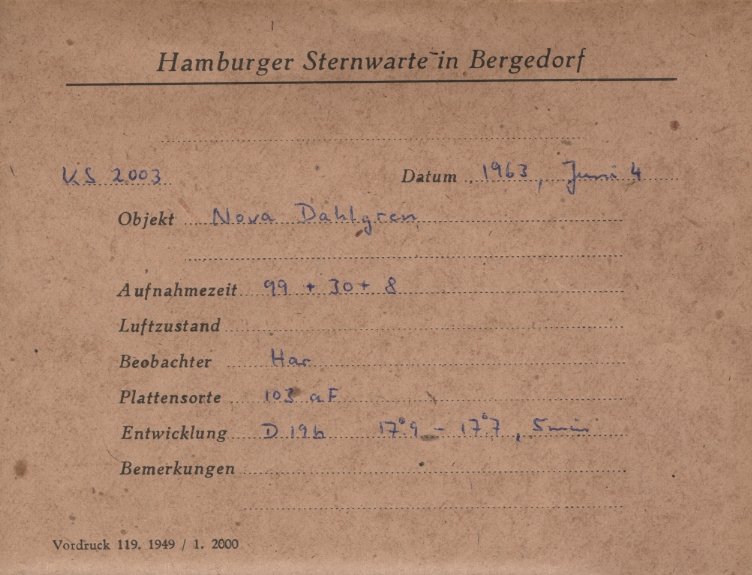 Hamburger Sternwarte in Bergedorf
KS 2003 Datum 1963, Juni 4
Objekt Nova Dahlgren
Aufnahmezeit 99 + 30 + 8
Luftzustand
Beobachter Har
Plattensorte 103 aF
Entwicklung D 19b 17°9 – 17°7, 5 min
Bemerkungen
Vordruck 119. 1949 / 1. 2000